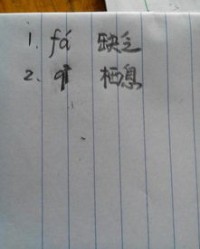 1. fá 缺乏
2. qī 栖息